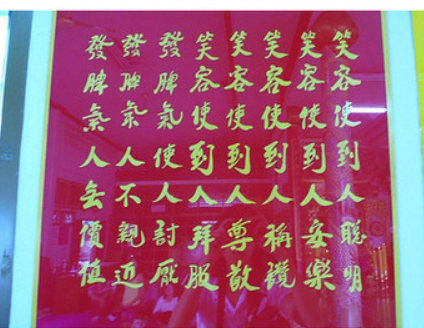 笑容使到人聰明
笑容使到人安樂
笑容使到人稱讚
笑容使到人尊敬
笑容使到人拜服
發脾氣使人討厭
發脾氣人不親近
發脾氣人無價值